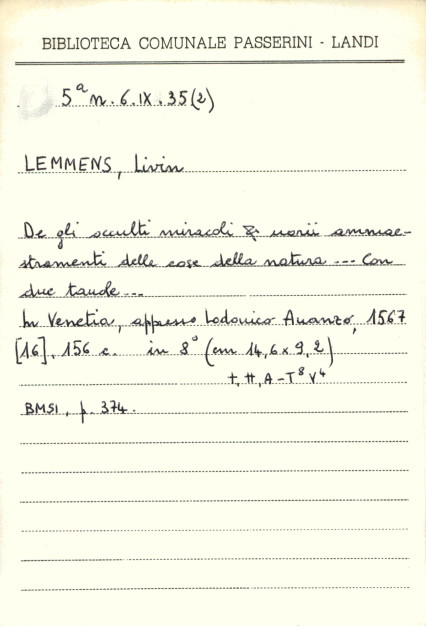 BIBLIOTECA COMUNALE PASSERINI - LANDI
5ª n. 6. IX. 35(2)
LEMMENS, Livin
De gli occulti miracoli & varii ammae-
stramenti delle cose della natura ... Con
due tavole ...
In Venetia, appresso Lodovico Avanzo, 1567
[16], 156 c. in 8° (cm 14,6 x 9,2)
+, ++, A-T⁸ V⁴
BMSI, p. 374.